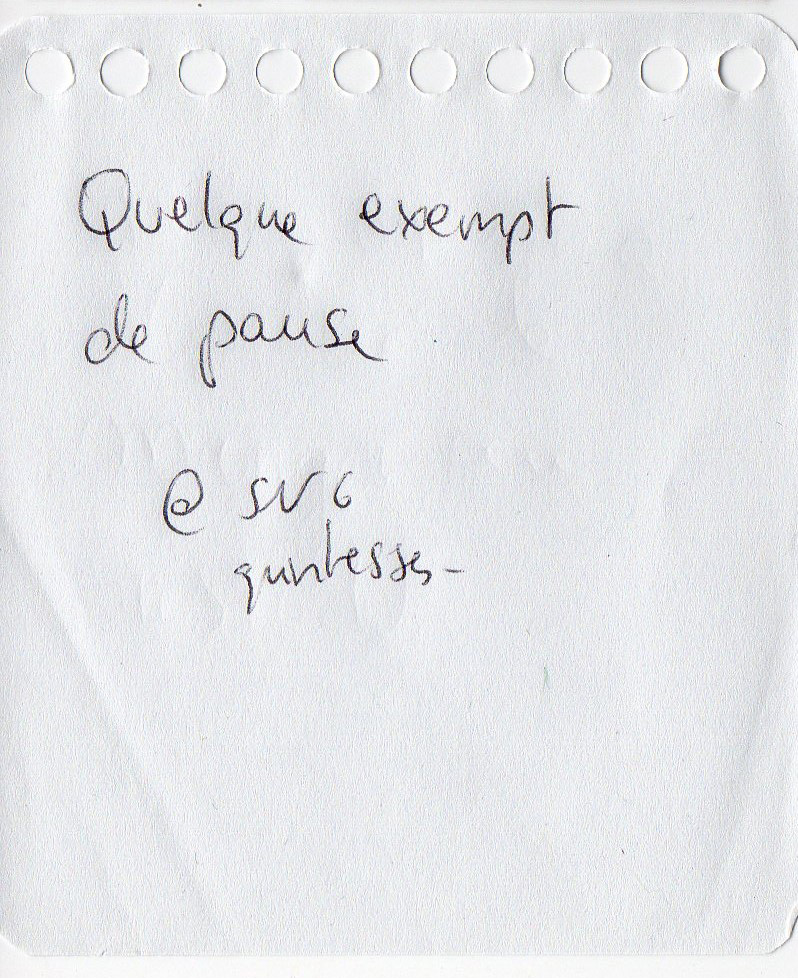 Quelque exempt
de pause
@ SVG